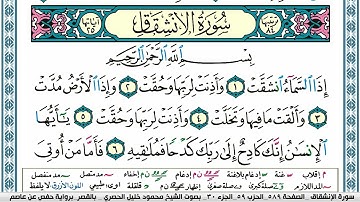 سُورَةُ الانْشِقَاقِ
بِسْمِ اللَّهِ الرَّحْمَٰنِ الرَّحِيمِ
إِذَا السَّمَاءُ انشَقَّتْ ١ وَأَذِنَتْ لِرَبِّهَا وَحُقَّتْ ٢ وَإِذَا الْأَرْضُ مُدَّتْ
٣ وَأَلْقَتْ مَا فِيهَا وَتَخَلَّتْ ٤ وَأَذِنَتْ لِرَبِّهَا وَحُقَّتْ ٥ يَٰأَيُّهَا
الْإِنسَٰنُ إِنَّكَ كَادِحٌ إِلَىٰ رَبِّكَ كَدْحًا فَمُلَٰقِيهِ ٦ فَأَمَّا مَنْ أُوتِيَ
سورة الإنشقاق. الصفحة ٥٨٩ الحزب ٥٩ الجزء ٣٠ بصوت الشيخ محمود خليل الحصري بالقصر برواية حفص عن عاصم